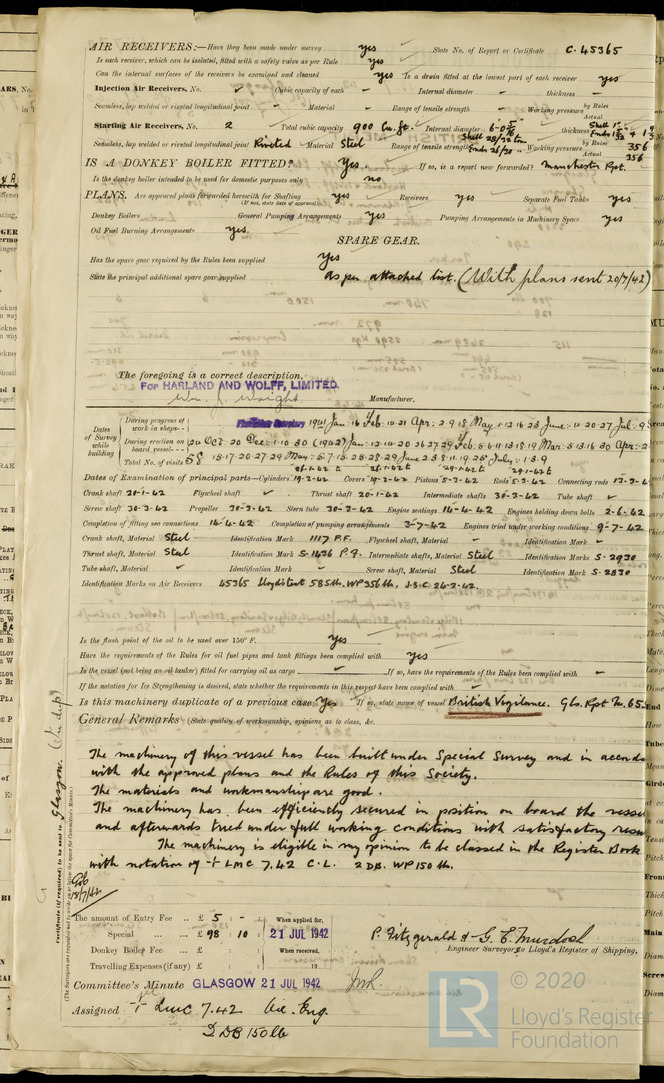 AIR RECEIVERS:—Have they been made under survey yes State No. of Report or Certificate C. 45365
Is each receiver, which can be isolated, fitted with a safety valve as per Rule yes
Can the internal surfaces of the receivers be examined and cleaned yes Is a drain fitted at the lowest part of each receiver yes
Injection Air Receivers, No. Cubic capacity of each Internal diameter thickness
Seamless, lap welded or riveted longitudinal joint Material Range of tensile strength Working pressure by Rules Actual
Starting Air Receivers, No. 2 Total cubic capacity 900 Cu. ft. Internal diameter thickness
Seamless, lap welded or riveted longitudinal joint Riveted Material Steel Range of tensile strength Shell 28/32 tons Ends 26/30 Working pressure by Rules 356 Actual 356
IS A DONKEY BOILER FITTED? Yes If so, is a report now forwarded? Manchester Rpt.
Is the donkey boiler intended to be used for domestic purposes only no
PLANS. Are approved plans forwarded herewith for Shafting yes Receivers yes Separate Fuel Tanks yes
(If not, state date of approval)
Donkey Boilers General Pumping Arrangements yes Pumping Arrangements in Machinery Space yes
Oil Fuel Burning Arrangements yes.
SPARE GEAR.
Has the spare gear required by the Rules been supplied yes
State the principal additional spare gear supplied as per attached list. (With plans sent 20/7/42)
The foregoing is a correct description,
FOR HARLAND AND WOLFF, LIMITED.
Wm. J. Wright Manufacturer.
Dates of Survey while building
During progress of work in shops - - (1941) Jan. 16 Feb. 10. 21 Apr. 2. 9. 18 May 1. 12. 16. 23 June 11. 20. 27 Jul. 9
During erection on board vessel - - 20 Dec. 1. 10. 30 (1942) Jan. 12. 14. 20. 26. 27. 29 Feb. 5. 6. 11. 13. 18. 19 Mar. 5. 13. 16. 30 Apr. 2
Total No. of visits 58
Dates of Examination of principal parts—Cylinders 19.2.42 Covers 19.2.42 Pistons 5.3.42 Rods 5.3.42 Connecting rods 13.3.4
Crank shaft 20.1.42 Flywheel shaft Thrust shaft 20.1.42 Intermediate shafts 30.3.42 Tube shaft
Screw shaft 30.3.42 Propeller 30.3.42 Stern tube 30.3.42 Engine seatings 14.4.42 Engines holding down bolts 2.6.42
Completion of fitting sea connections 14.4.42 Completion of pumping arrangements 3.7.42 Engines tried under working conditions 9.7.42
Crank shaft, Material Steel Identification Mark 1117 P.F. Flywheel shaft, Material Identification Mark
Thrust shaft, Material Steel Identification Mark S.1436 P.F. Intermediate shafts, Material Steel Identification Marks S.2930
Tube shaft, Material Identification Mark Screw shaft, Material Steel Identification Mark S.2830
Identification Marks on Air Receivers 45365 Lloyds test 585 lb. WP 356 lb. J.S.C. 24.2.42.
Is the flash point of the oil to be used over 150° F. yes
Have the requirements of the Rules for oil fuel pipes and tank fittings been complied with yes
Is the vessel (not being an oil tanker) fitted for carrying oil as cargo If so, have the requirements of the Rules been complied with
If the notation for Ice Strengthening is desired, state whether the requirements in this respect have been complied with
Is this machinery duplicate of a previous case Yes If so, state name of vessel British Vigilance. Gls. Rpt No. 65
General Remarks (State quality of workmanship, opinions as to class, &c.
The machinery of this vessel has been built under Special Survey and in accord
with the approved plans and the Rules of this Society.
The materials and workmanship are good.
The machinery has been efficiently secured in position on board the vesse
and afterwards tried under full working conditions with satisfactory resu
The machinery is eligible in my opinion to be classed in the Register Book
with notation of + LMC 7.42 C.L. 2 DB. WP 150 lb.
The amount of Entry Fee .. £ 5 : - :
Special ... .. £ 98 : 10 :
Donkey Boiler Fee ... £
Travelling Expenses (if any) £
When applied for, 21 JUL 1942
When received, 19
P. Fitzgerald & G. E. Murdoch
Engineer Surveyor to Lloyd's Register of Shipping.
Committee's Minute GLASGOW 21 JUL 1942
Assigned + LMC 7.42 Oil Eng.
2 DB 150 lb
Certificate (if required) to be sent to Glasgow.
(The Surveyors are requested not to write on or below the space for Committee's Minute.)
LR
© 2020
Lloyd's Register
Foundation